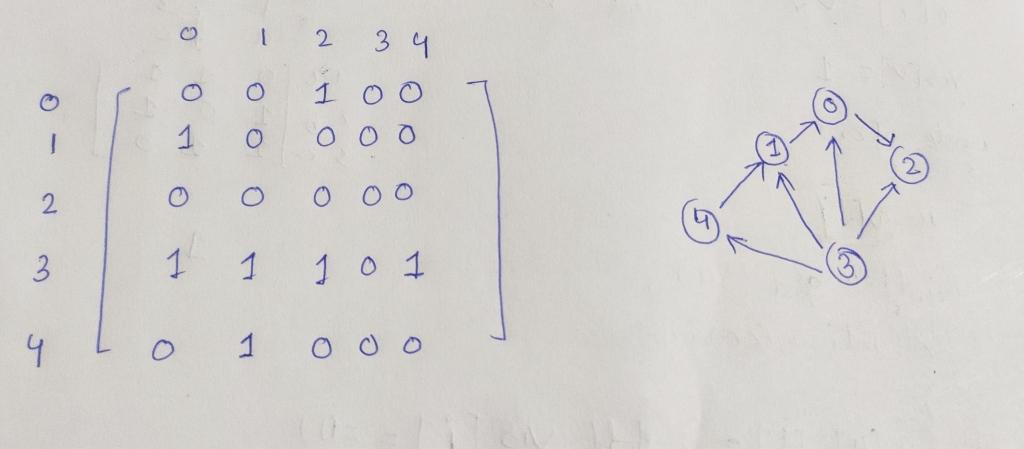 0 1 2 3 4
0 0 0 1 0 0
1 1 0 0 0 0
2 0 0 0 0 0
3 1 1 1 0 1
4 0 1 0 0 0
0
1
2
4
3